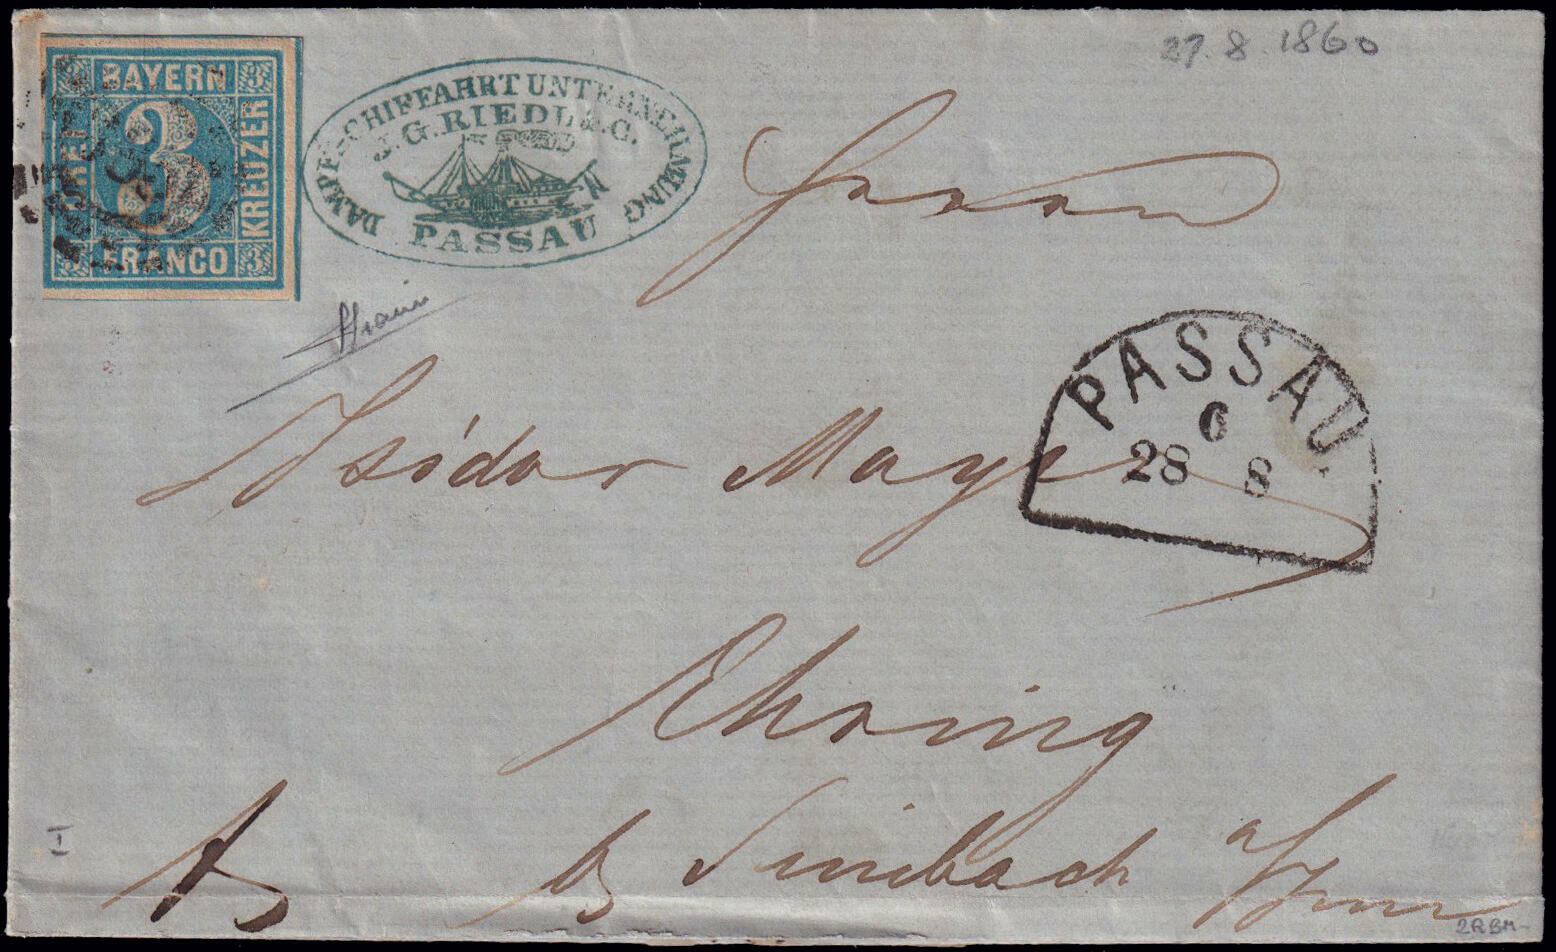 27.8.1860
BAYERN
DREI
3
KREUZER
FRANCO
DAMPF-SCHIFFAHRT UNTERNEHMUNG
J.G. RIEDL & C.
PASSAU
Herrn
PASSAU.
6
28 8
Isidor Maye
Ehring
b/ Simbach a/Inn
I
2RBM-